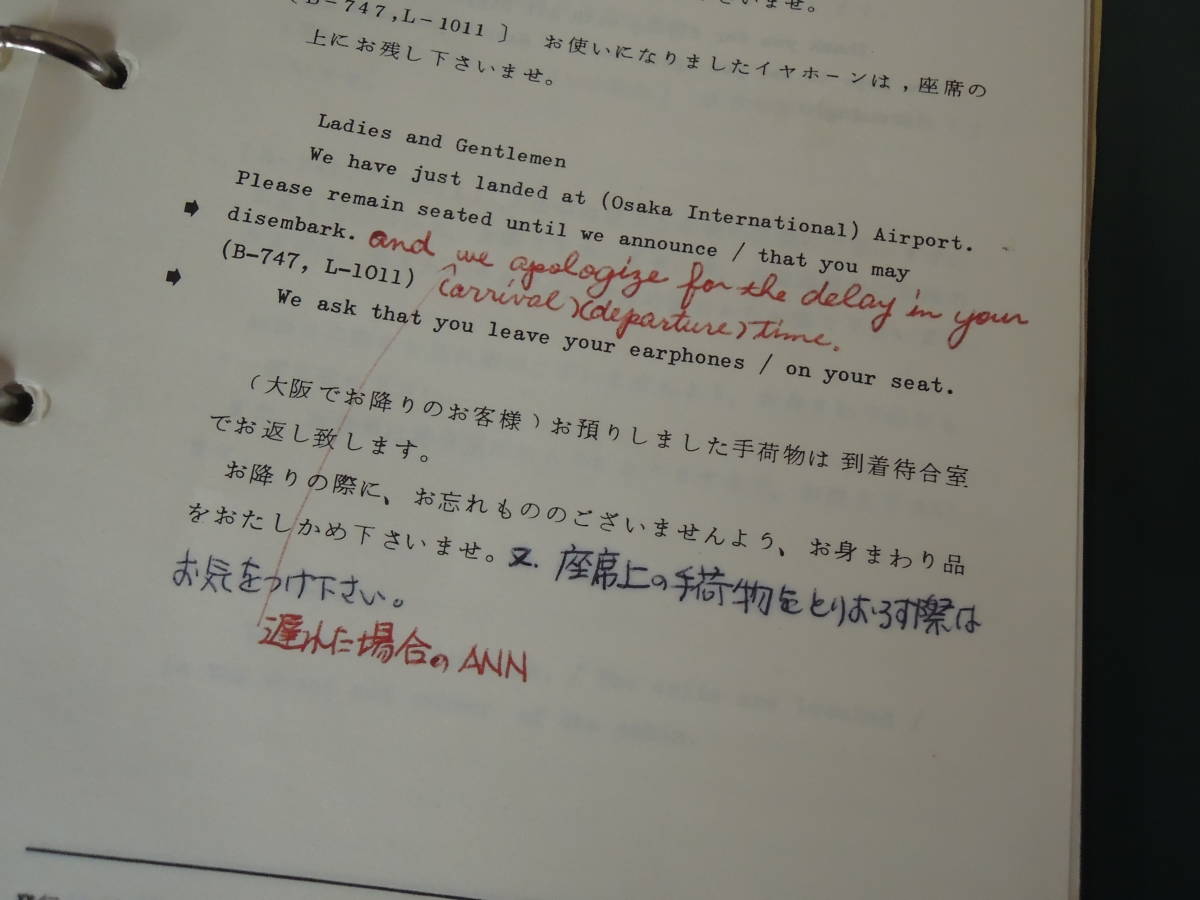 いませ。
(B-747,L-1011〕 お使いになりましたイヤホーンは,座席の
上にお残し下さいませ。
Ladies and Gentlemen
We have just landed at (Osaka International) Airport.
Please remain seated until we announce / that you may
disembark. and we apologize for the delay in your
(B-747, L-1011) (arrival)(departure) time.
We ask that you leave your earphones / on your seat.
(大阪でお降りのお客様)お預りしました手荷物は 到着待合室
でお返し致します。
お降りの際に、お忘れもののございませんよう、お身まわり品
をおたしかめ下さいませ。又. 座席上の手荷物をとりおろす際は
お気をつけ下さい。
遅れた場合の ANN